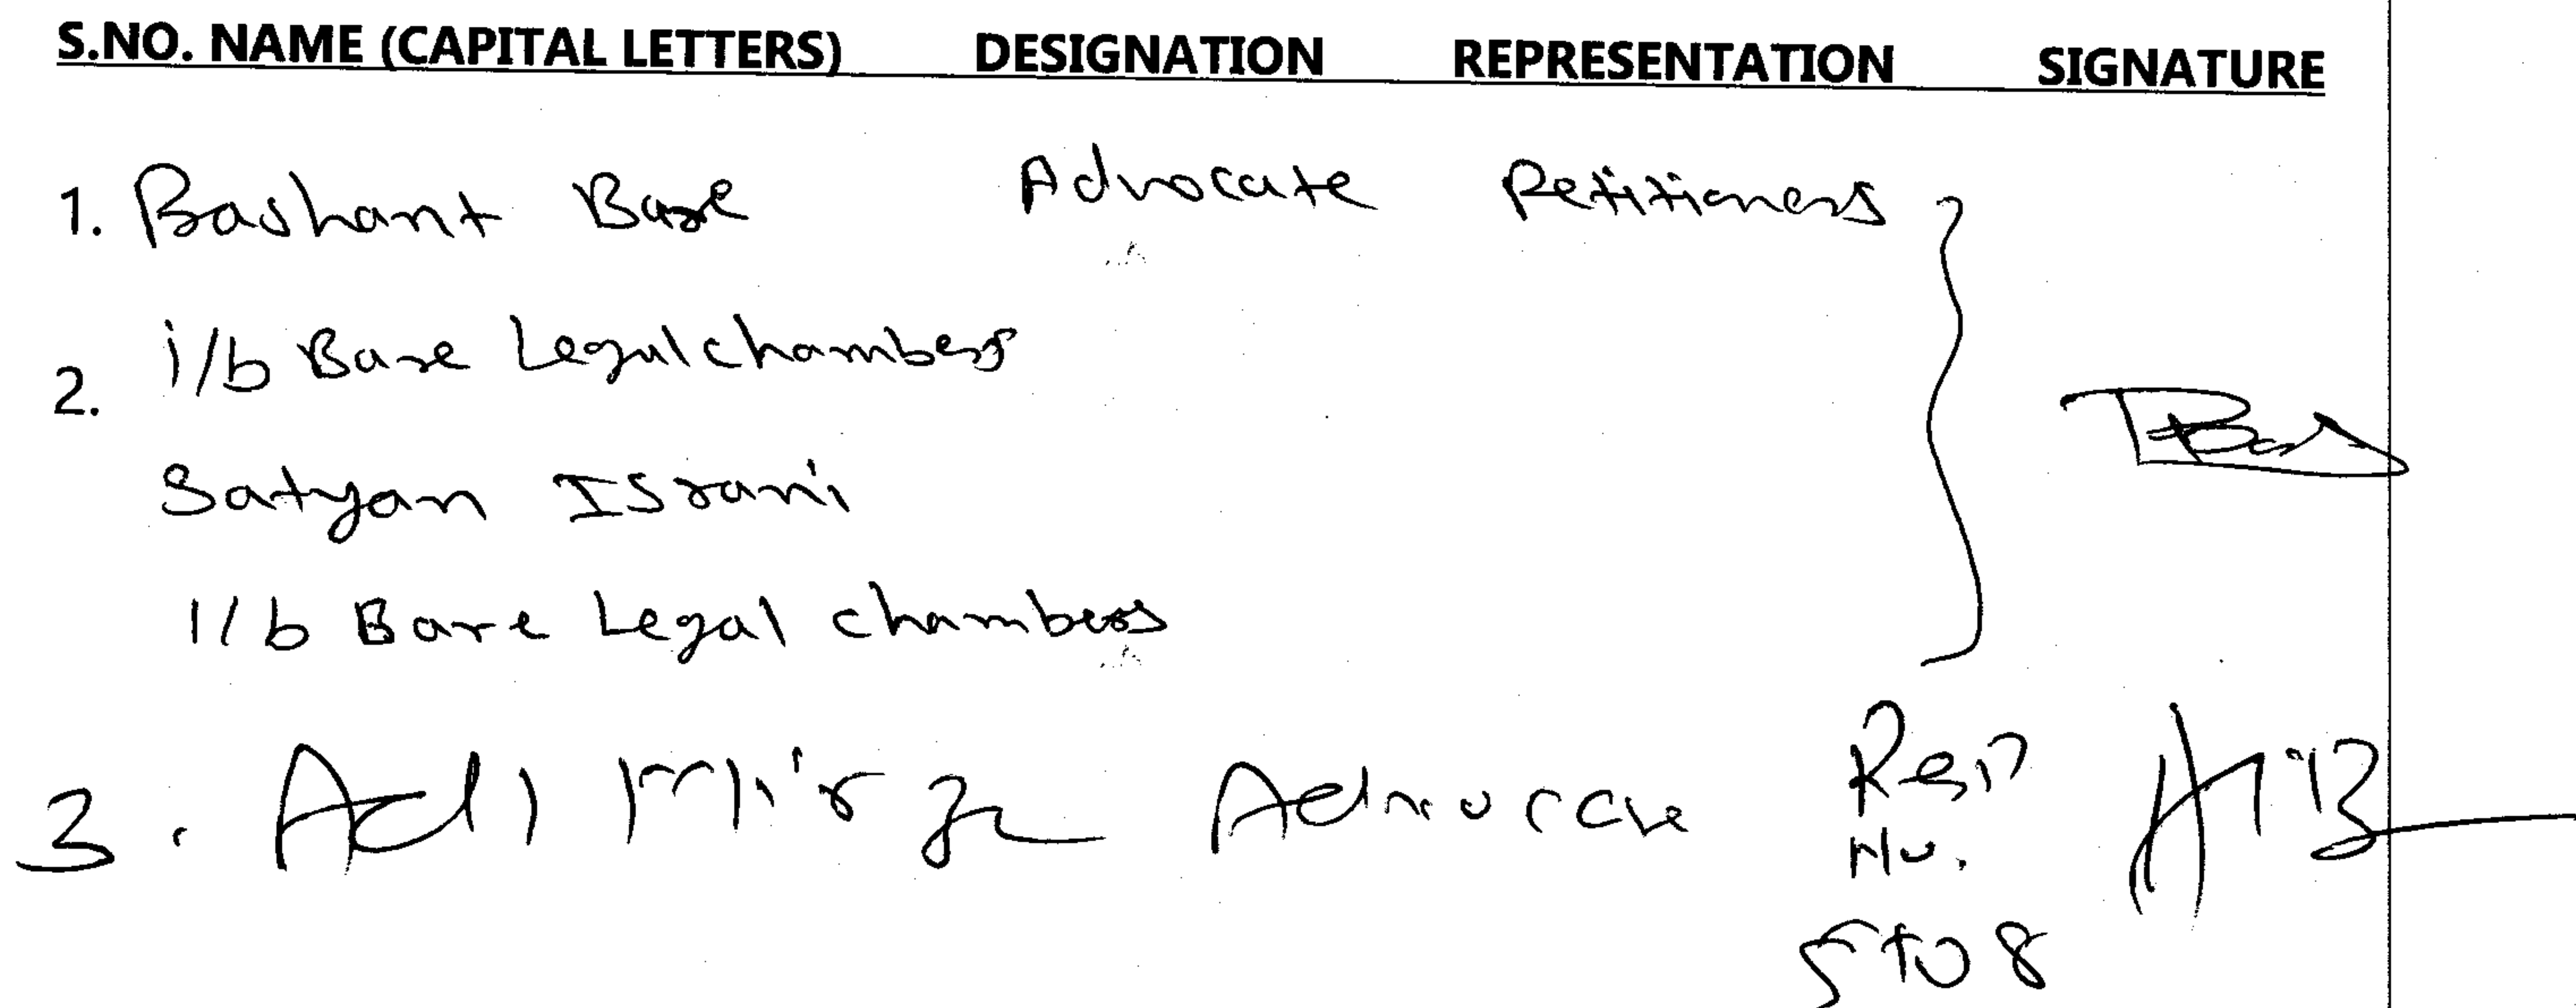 S.NO. NAME (CAPITAL LETTERS) DESIGNATION REPRESENTATION SIGNATURE
1. Bashant Bare Advocate Petitioners
2. i/b Bare Legal chambers
Satyan Israni
i/b Bare Legal chambers
3. Adil Mirza Advocate Resp
No.
5 to 8